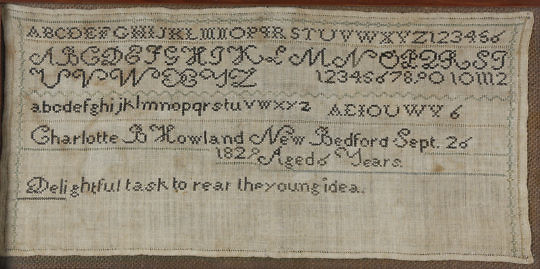 ABCDEFGHIJKLMNOPQRSTUVWXYZ123456
ABCDEFGHIJKLMNOPQRST
UVWXYZ 123456789010 11 12
abcdefghijklmnopqrstuvwxyz AEIOUWY 6
Charlotte B Howland New Bedford Sept. 26
1829 Aged 6 Years.
Delightful task to rear the young idea.